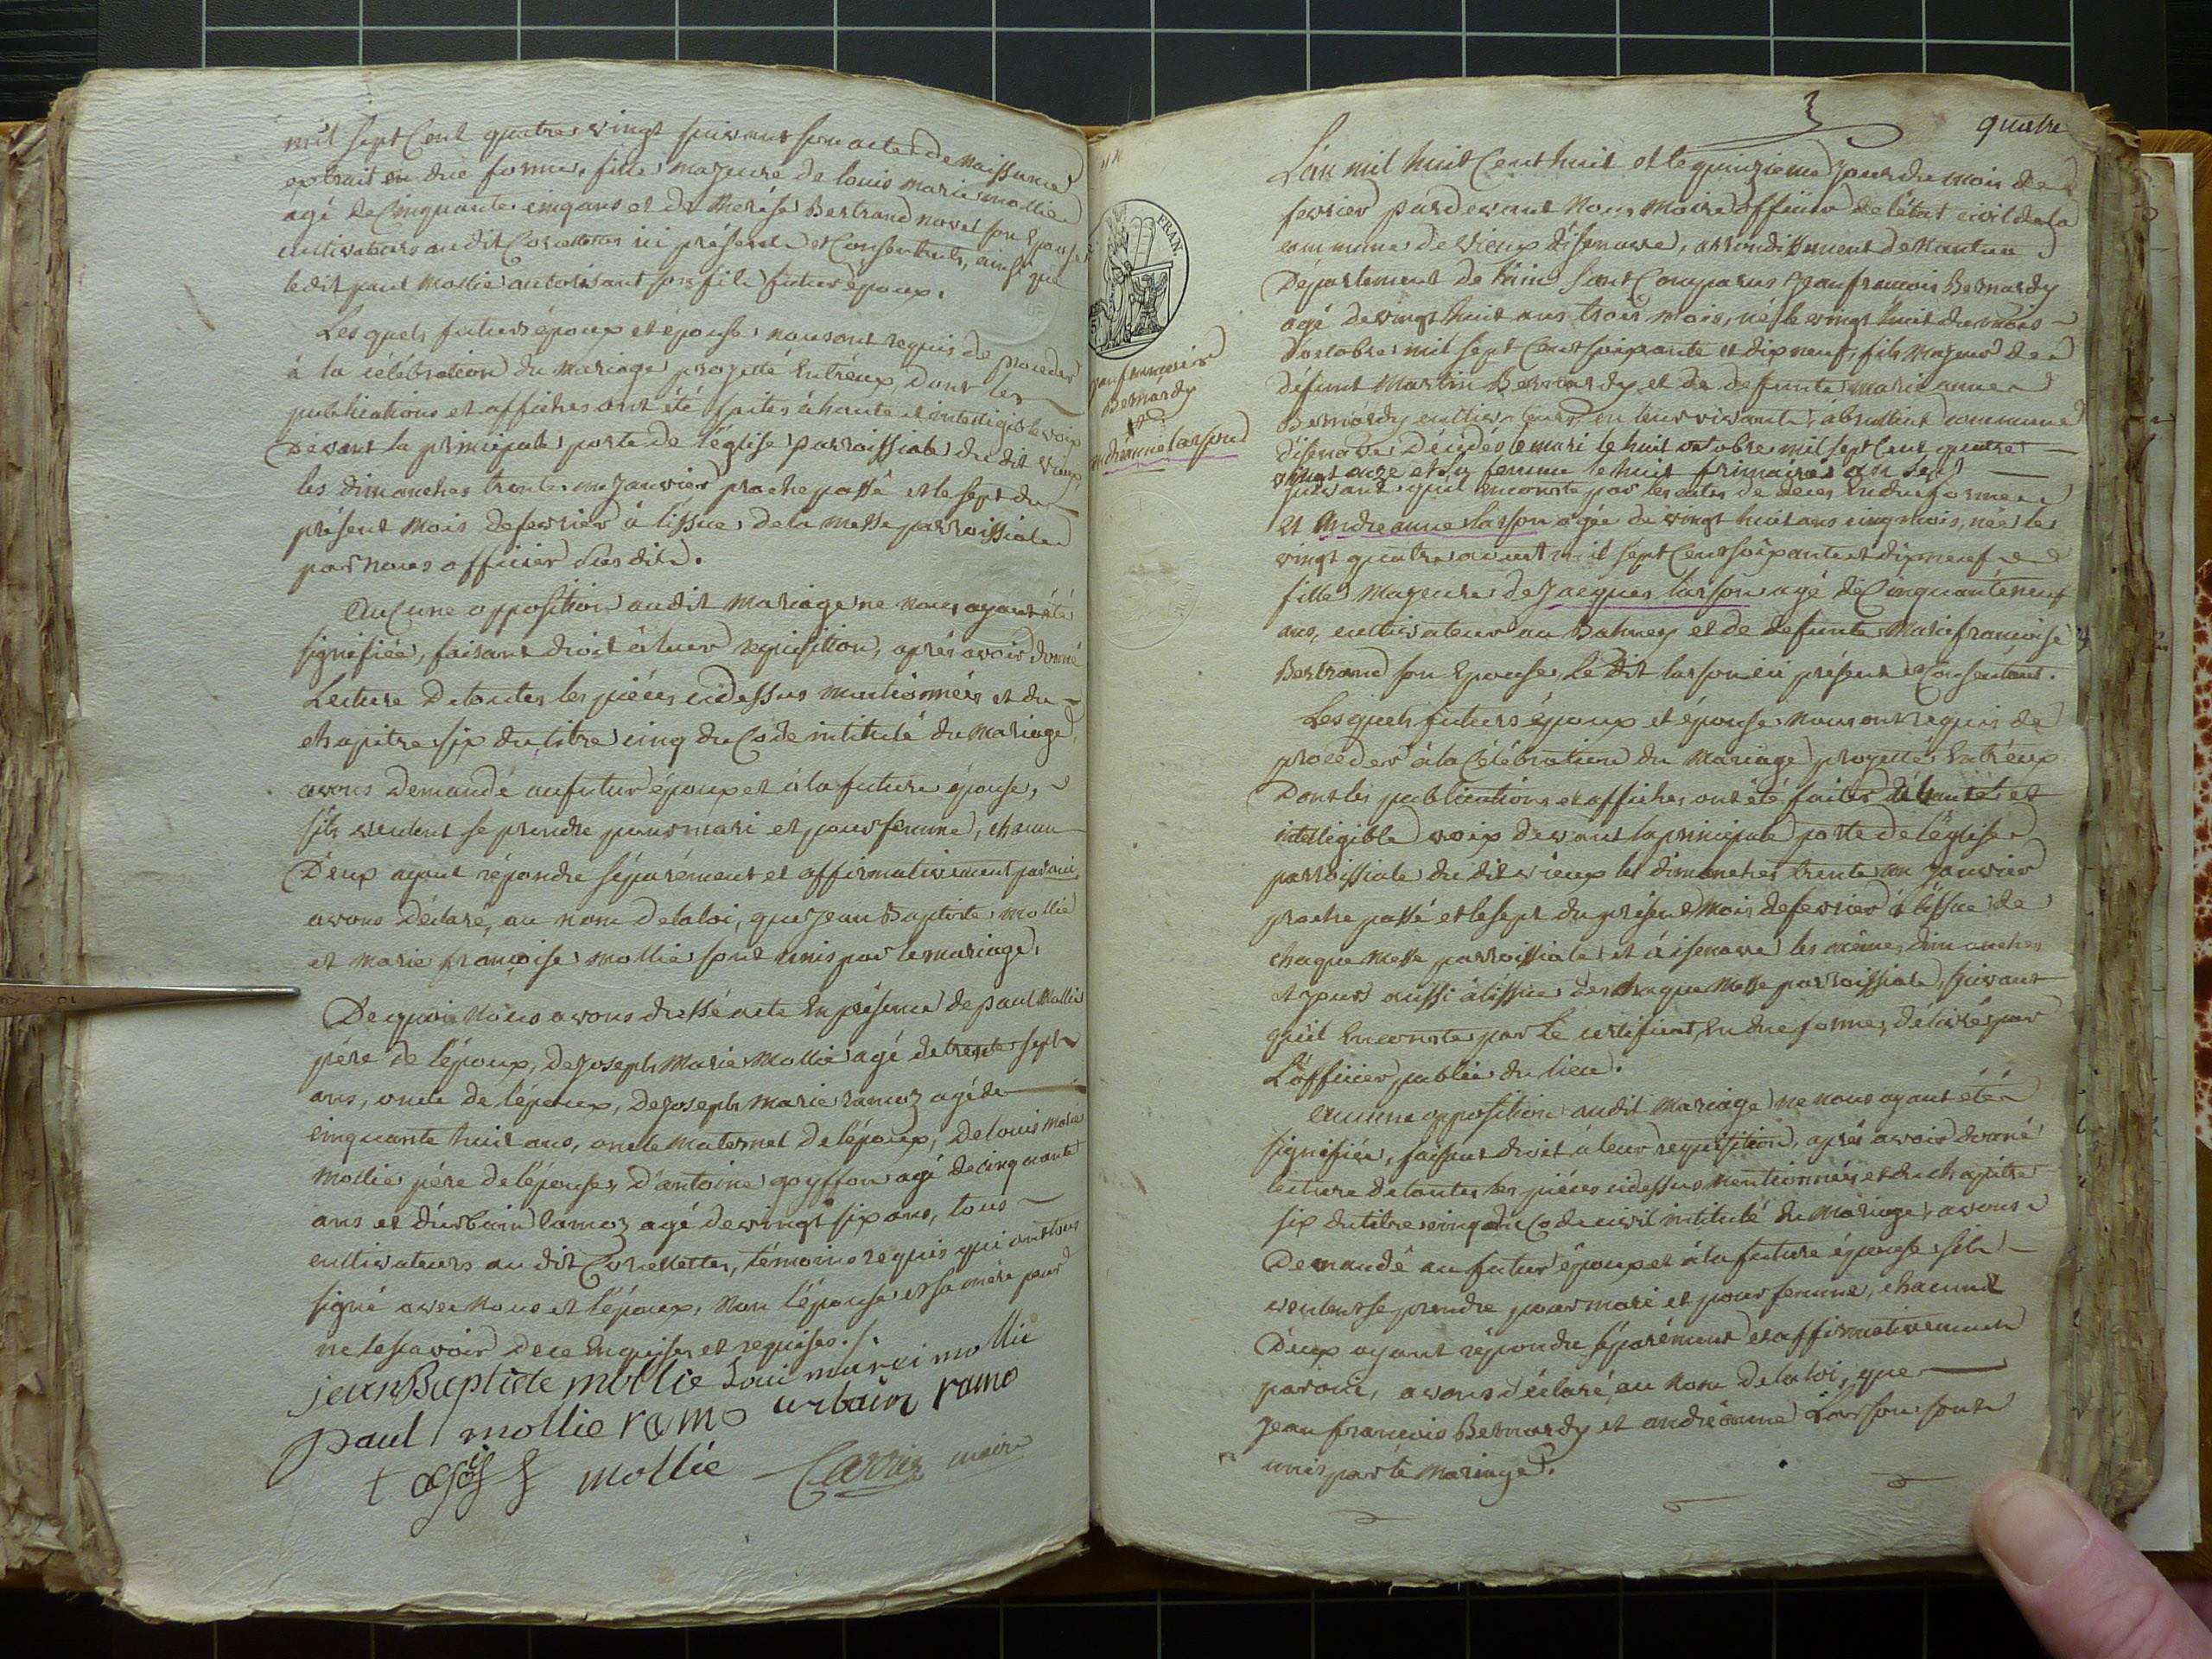 mil sept Cent quatre vingt suivant son acte de Naissance
extrait en due forme, fille majeure de louis marie mollie
agé de Cinquante cinq ans et de therése Bertrand novel son Epouse
cultivateurs au dit ici présents et Consentants, ainsi que
ledit paul Mollie autorisant son fils futur époux.
Les quels futurs époux et épouse nous ont requis de proceder
à la célébration du Mariage projetté Entréux, dont les
publications et affiches ont été faites à haute et intelligible voix
Devant la principale porte de l'église parroissiale du dit vieux,
les dimanches trente un Janvier proche passé et le sept du
présent mois de fevrier à lissue de la messe parroissiale
par nous officier susdit.
Aucune opposition audit Mariage ne nous ayant été
signifiée, faisant droit à leur requisition, aprés avoir donné
Lecture de toutes les piéces cidessus mentionnées et du
chapitre six du titre cinq du Code intitulé du Mariage,
avons demandé au futur époux et à la future épouse,
s'ils veulent se prendre pour mari et pour femme, chacun
D'eux ayant répondre séparément et affirmativement par oui,
avons déclaré, au nom de la loi, que Jean Baptiste mollie
et marie françoise mollie sont unis par le mariage,
De quoi Nous avons dressé acte En présence de paul Mollie
pére de l'époux, de joseph Marie Mollie agé de trente sept
ans, oncle de l'époux, de joseph marie ramoz agé de
cinquante huit ans, oncle maternel de l'époux, de louis marie
mollie pére de l'épouse, d'antoine goyffon agé de cinquante
ans et d'urbain lamoz agé de vingt six ans, tous
cultivateurs au dit, témoins requis qui ont tous
signé avec nous et l'époux, non l'épouse et sa mére pour
ne le scavoir de ce Enquises et requises./.
jean Baptiste mollie Loui marei mollie
paul mollie ramo urbain ramo
mollie Carrier maire
quatre
L'an mil huit Cent huit et le quinzieme Jour du mois de
fevrier pardevant Nous Maire officier de l'état civil de la
commune de vieux d'isenave, arrondissement de Nantua
Département de l'ain sont Comparus Jean francois Bernardy
agé de vingt huit ans trois mois, né le vingt huit du mois
d'octobre mil sept Cent soixante et dix neuf, fils Majeur de
défunt Martin Bernardy et de defunte marie anne
Bernardy cultivateurs, en leur vivant, commune
d'isenave Décédés le mari le huit octobre mil sept Cent quatre
vingt onze et sa femme le huit frimaire an six
suivant quil enconste par les actes de deces En due forme
Et Andreanne larson agée de vingt huit ans cinq mois, née le
vingt quatre auust mil sept Cent soixante et dix neuf
fille Majeure de Jacques larson agé de Cinquante neuf
ans, cultivateur au Balmey et de defunte Marie francoise
Bertrand son Epouse, Le Dit larson ici présent et Consentant.
Jean francois
Bernardy
et
andréanne larson
FRAN.
Lesquels futurs époux et épouse nous ont requis de
procéder à la Célébration du Mariage projetté Entréux
Dont les publications et affiches ont été faites à haute et
intelligible voix devant la principale porte de l'église
parroissiale du dit vieux les dimanches trente un Janvier
proche passé et le sept du présent mois de fevrier à lissue de
chaque Messe parroissiale et à isenave les même dimanches
et jours aussi à lissue de chaque Messe parroissiale, suivant
qu'il Enconste par Le certificat, En due forme, délivré par
L'officier public du lieu.
Aucune opposition audit Mariage ne nous ayant été
signifiée, faisant droit à leur requisition, aprés avoir donné
lecture de toutes les piéces cidessus mentionnées et du chapitre
six du titre cinq du Code civil intitulé du Mariage, avons
Demandé au futur époux et à la future épouse s'ils
veulent se prendre pour mari et pour femme, chacun
D'eux ayant répondre séparément et affirmativement
par oui, avons déclaré, au Nom de la loi, que
Jean francois Bernardy et andréanne Larson sont
unis par le Mariage.